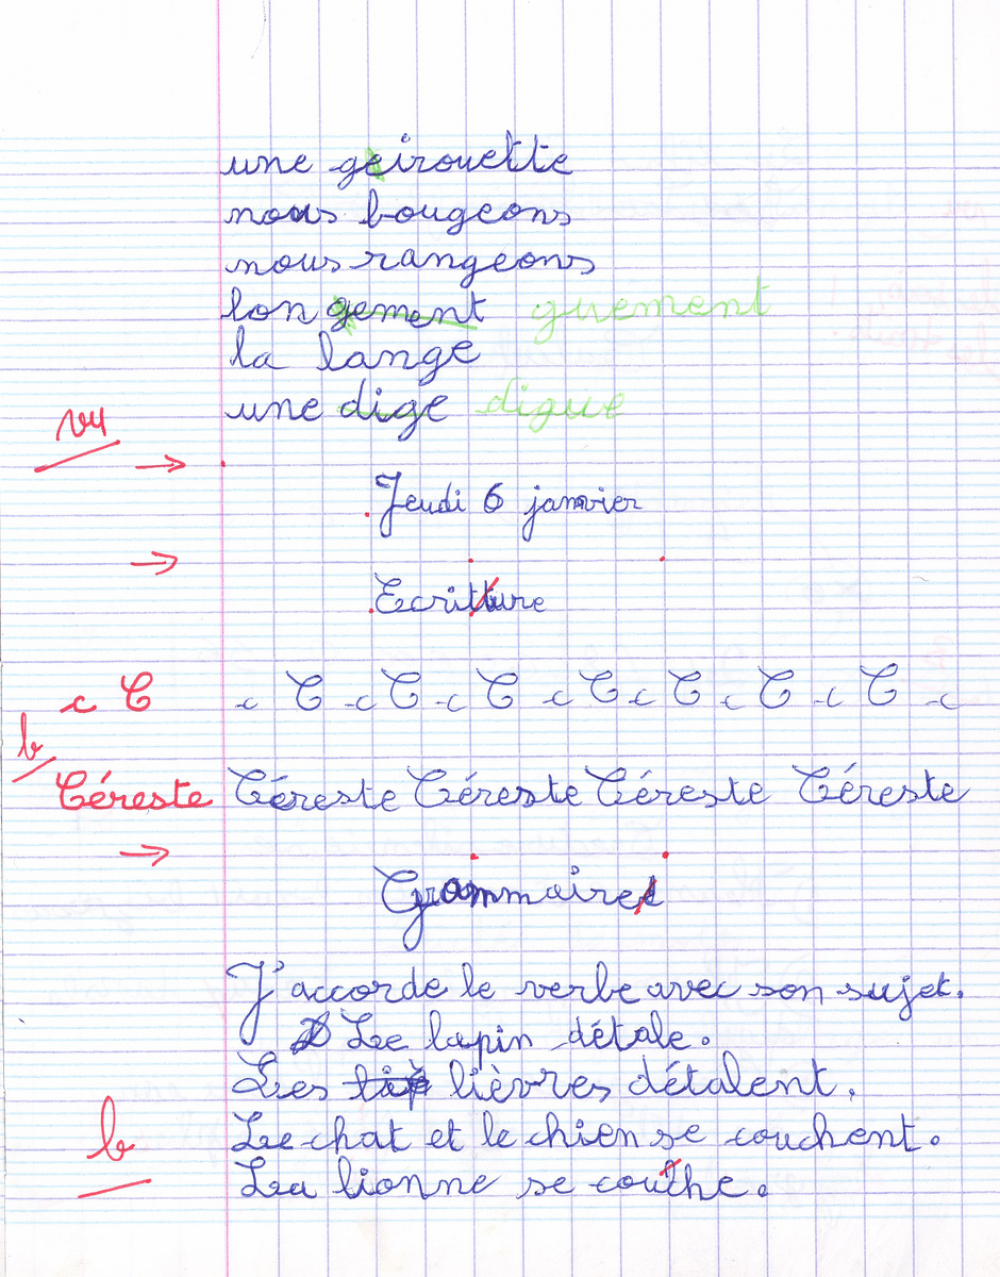 une geirouette
nous bougeons
nous rangeons
lon gement guement
la lange
une dige digue
vu
Jeudi 6 janvier
Ecritture
c C c C c C c C c C c C c C c C c
b
Céreste Céreste Céreste Céreste Céreste
Grammaires
J'accorde le verbe avec son sujet.
Le lapin détale.
Les liè lièvres détalent.
b Le chat et le chien se couchent.
La lionne se couthe.